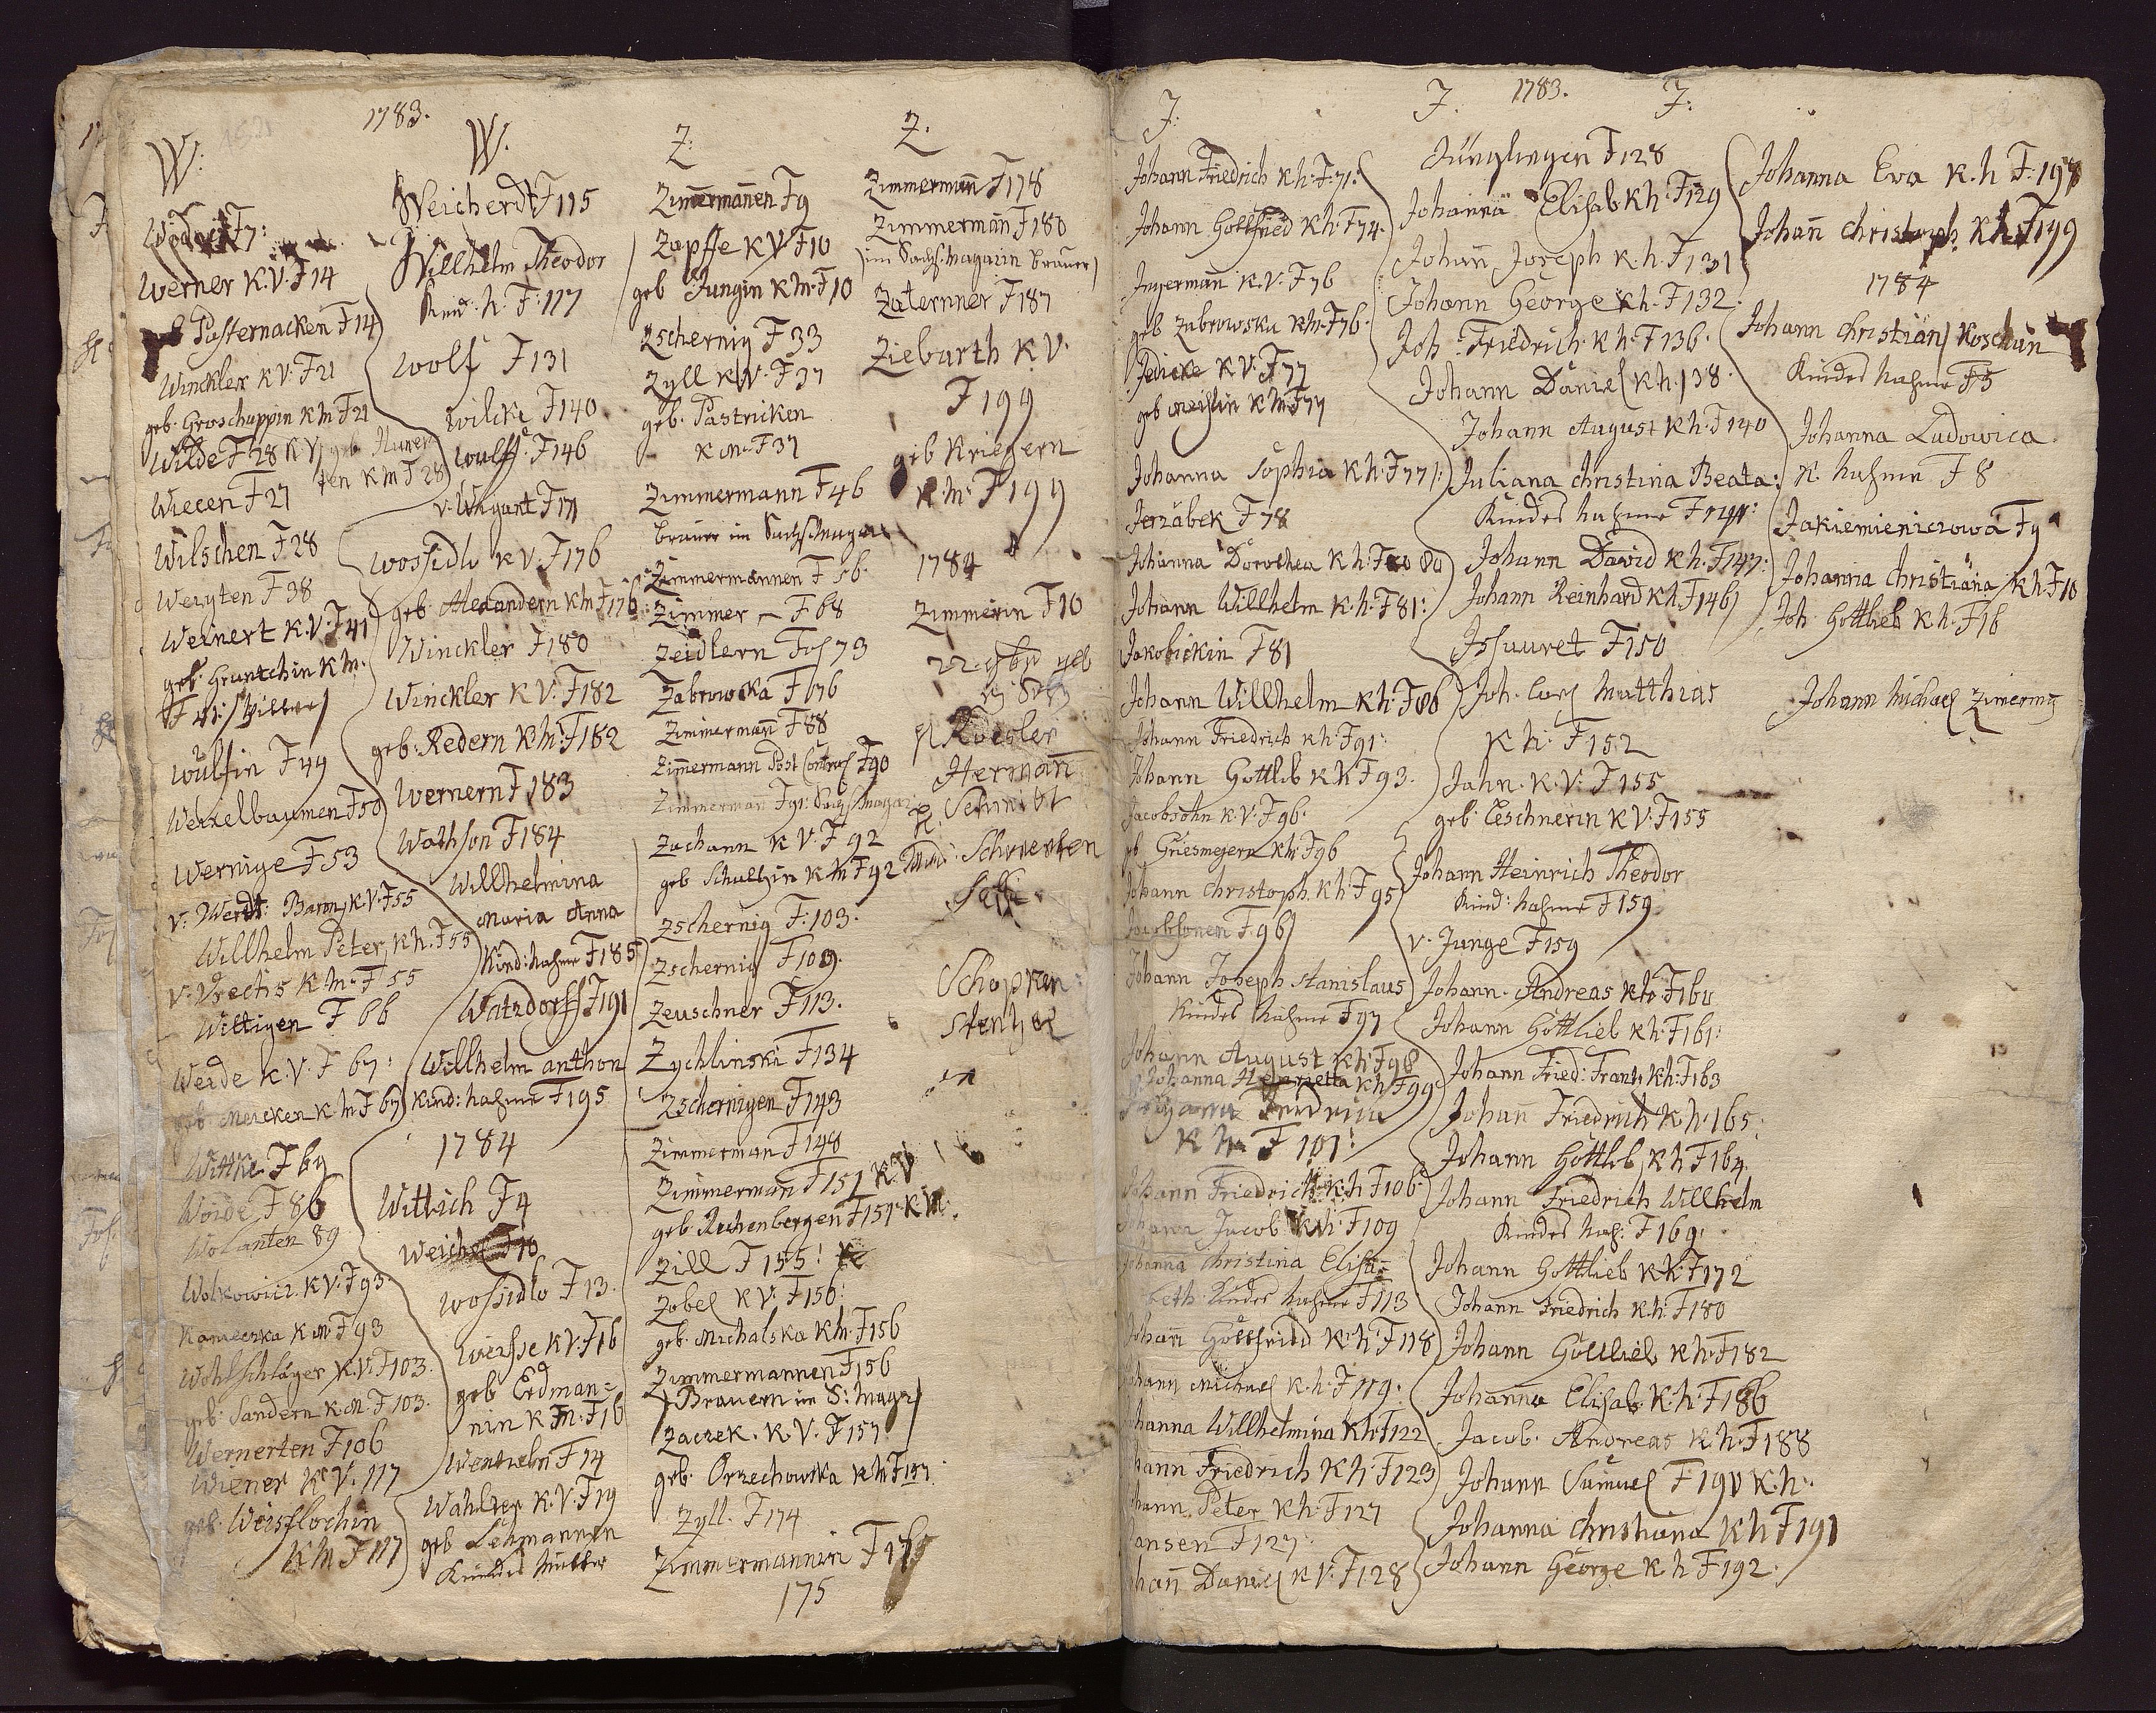 1783.
W:
Werner K.V. F14
Pasternacken F14
Winckler K.V. F21
geb. Groschuppin K M F21
Wilde F28 K V
ten K M F28
Wiecen F27
Wilschen F28
Weryten F38
Weinert K.V. F41
geb. Gruntchin K M.
F 41
Wulfin F49
Weixelbaumen F50
Wernige F53
v: Werdt: Baron, K.V. F55
Willhelm Peter, K h. F55
v. Vrechs K M. F55
Wittigen F 66
Weide K.V. F 67:
geb. Meicken K M F 67
Wittke F 69
Woide F 86
Wolanten 89
Wolkowicz. K V. F93
Kamieczka K M. F93
Wohlschläger K.V. F103.
geb. Sandern K.M. F103.
Wernerten F106
Wiener K V. 117
geb. Weisflochin
K M F117
W.
Weicherdt F115
Willhelm Theodor
Kind: h. F:117
Wolf F131
Wilcke F140
Wulff. F146
v. Wigart F171
Wossidlo K V. F176
geb. Alexandern K M F176
Winckler F180
Winckler K V: F182
geb: Redern K M: F182
Wernern F183
Wathson F184
Willhelmina
Maria Anna
Kind: nahme F185
Watzdorff F191
Willhelm anthon
Kind: nahme F195
1784
Wittich F4
Weichel F10
Wossidlo F13.
Weisse K V. F16
geb Erdman=
nin K M. F16
Wentzeln F14
Wahlner K.V. F19
geb Lehmannin
Kindes Mutter
Z:
Zim̄erman̄en F9
Zapffe K V F10
geb Jungin K M. F10
Zschernig F33
Zyll K V. F37
geb. Pastricken
K M. F37
Zimmermann F46
Brauer im Sachs Magaz
Zimmermannen F 56.
Zimmer F68
Zeidlern Fol 73
Zabrowska F 76
Zimmerman̄ F88
Zim̄ermann Post F90
Zimmerman F91: Sachs Magaz
Zachann K V. F 92
geb Schultzin K M F92
Zschernig F:103.
Zschernig F109.
Zeuschner F113.
Zychlinski F134
Zschernigen F143
Zimmerman F148
Zimmerman F151 K.V
geb. Rechenbergen F151 K M.
Zill F 155!
Zobel K V. F156:
geb. Michalska K M. F156
Zimmermannen F156
Brauern im S: Magz
Zaczek. K.V. F157
geb. Orzechowska K M F157
Zyll. F174
Zimmermannin F
175
Z.
Zimmerman̄ F178
Zimmerman̄ F180
im Sachs. Magazin Brauer
Zaternner F187
Ziebarth K V.
F199
geb Kriegern
K M. F199
1784
Zimmerin F10
Roesler
Herman̄
Schmidt
Schuerten
Schopken
Stentzel
J:
J.
1783.
J:
Johann Friedrich K h: F:71:
Johann Gottfried K h: F74.
Ingerman̄ K.V. F76
geb Zabrowska K M. F76.
Jedicke K V. F77
geb K M F77
Johanna Sophia K h: F77
Jerzäbek F78
Johanna Dorothea K h: F80
Johann Willhelm K. h. F81:
Jakobickin F81
Johann Willhelm K h: F86
Johann Friedrich K h: F91:
Johann Gottlieb K h F93.
Jacobsohn K.V. F96.
Griesmejern K M F96
Johann Christoph. K h: F95
Jacobsonen F96
Johann Joseph Stanislaus
Kindes Nahme F97
Johann August K h: F98
Johanna Henrietta K h F99
K h F 101:
Johann Friedrich K: h F106
Johann Jacob K h: F109
Johanna Christina Elisa=
beth Kindes Nahme F113
Johan̄ Gottfried K: h: F118
Johann Michael K. h. F119:
Johanna Willhelmina K h: F122
Johann Friedrich K h: F123
Johann Peter K h: F127
Jansen F127:
Johan̄ Daniel K V: F128
Jünglingen F128
Johanna Elisab K h: F129
Johan̄ Joseph K h: F131
Johann George K h. F132:
Joh: Friedrich K h: F136.
Johann Daniel K h: 138
Johann August K h: F140
Juliana Christina Beata:
Kindes Nahme
Johann David K h. F147:
Johann Reinhard K h. F146
Issauret F150
Joh. Carl Matthias
K h: F152
Jahn. K.V: F155
geb. Teschnerin K V: F155
Johann Heinrich Theodor
Kind: Nahme F159
v. Junge F159
Johann. Andreas K h: F160
Johann Gottlieb K h: F161:
Johann Fried: Frantz K h: F163
Johan̄ Friedrich K h. 165:
Johann Gottlieb, K h F164.
Johann Friedrich Willhelm
Kindes Nah: F169:
Johann Gottlieb K h: F172
Johann Friedrich K h: F180
Johann Gottlieb K h: F182
Johanna Elisab. K. h. F186
Jacob. Andreas K h: F188
Johann Samuel F190 K. h.
Johanna Christiana K h F191
Johann George K h F192.
Johanna Eva K. h F:198
Johan̄ Christoph K h F199
1784
Johann Christian Koschun
Kindes Nahme F5
Johanna Ludowica.
K. Nahme F 8
Jakiemieniczowa F9
Johanna Christiana K h F10
Joh. Gottlieb K h. F16
Johann Michael Zimering